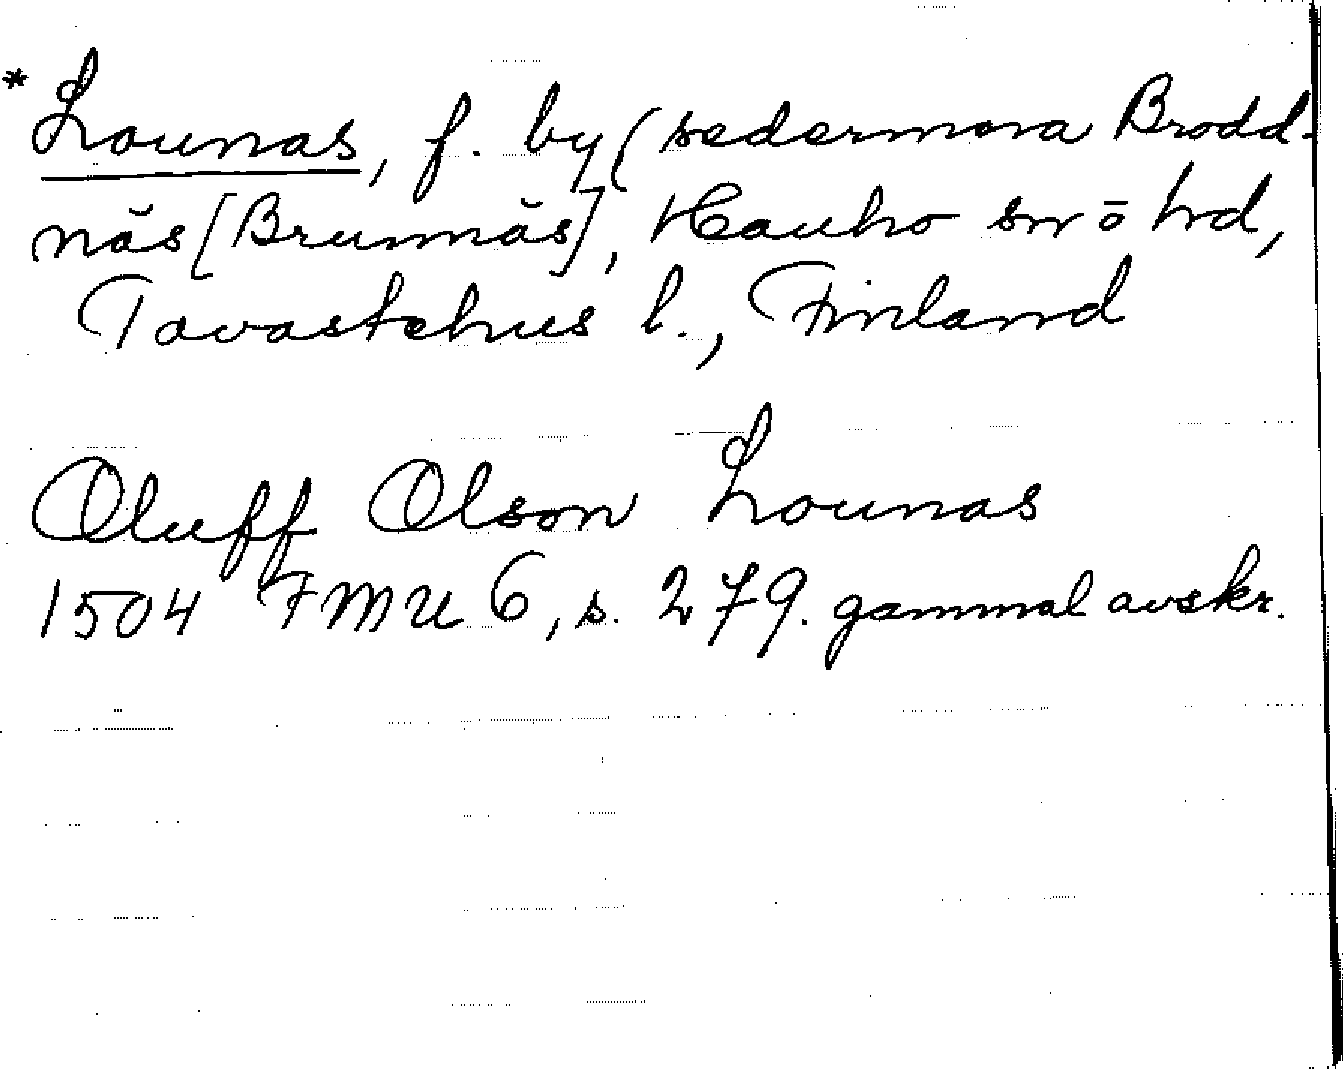 *Lounas, f. by (sedermera Brodd-
näs [Brunnäs], Hauho sn ō hd,
Tavastehus l., Finland
Oluff Olson Lounas
1504 FMU 6, s. 279. gammal avskr.